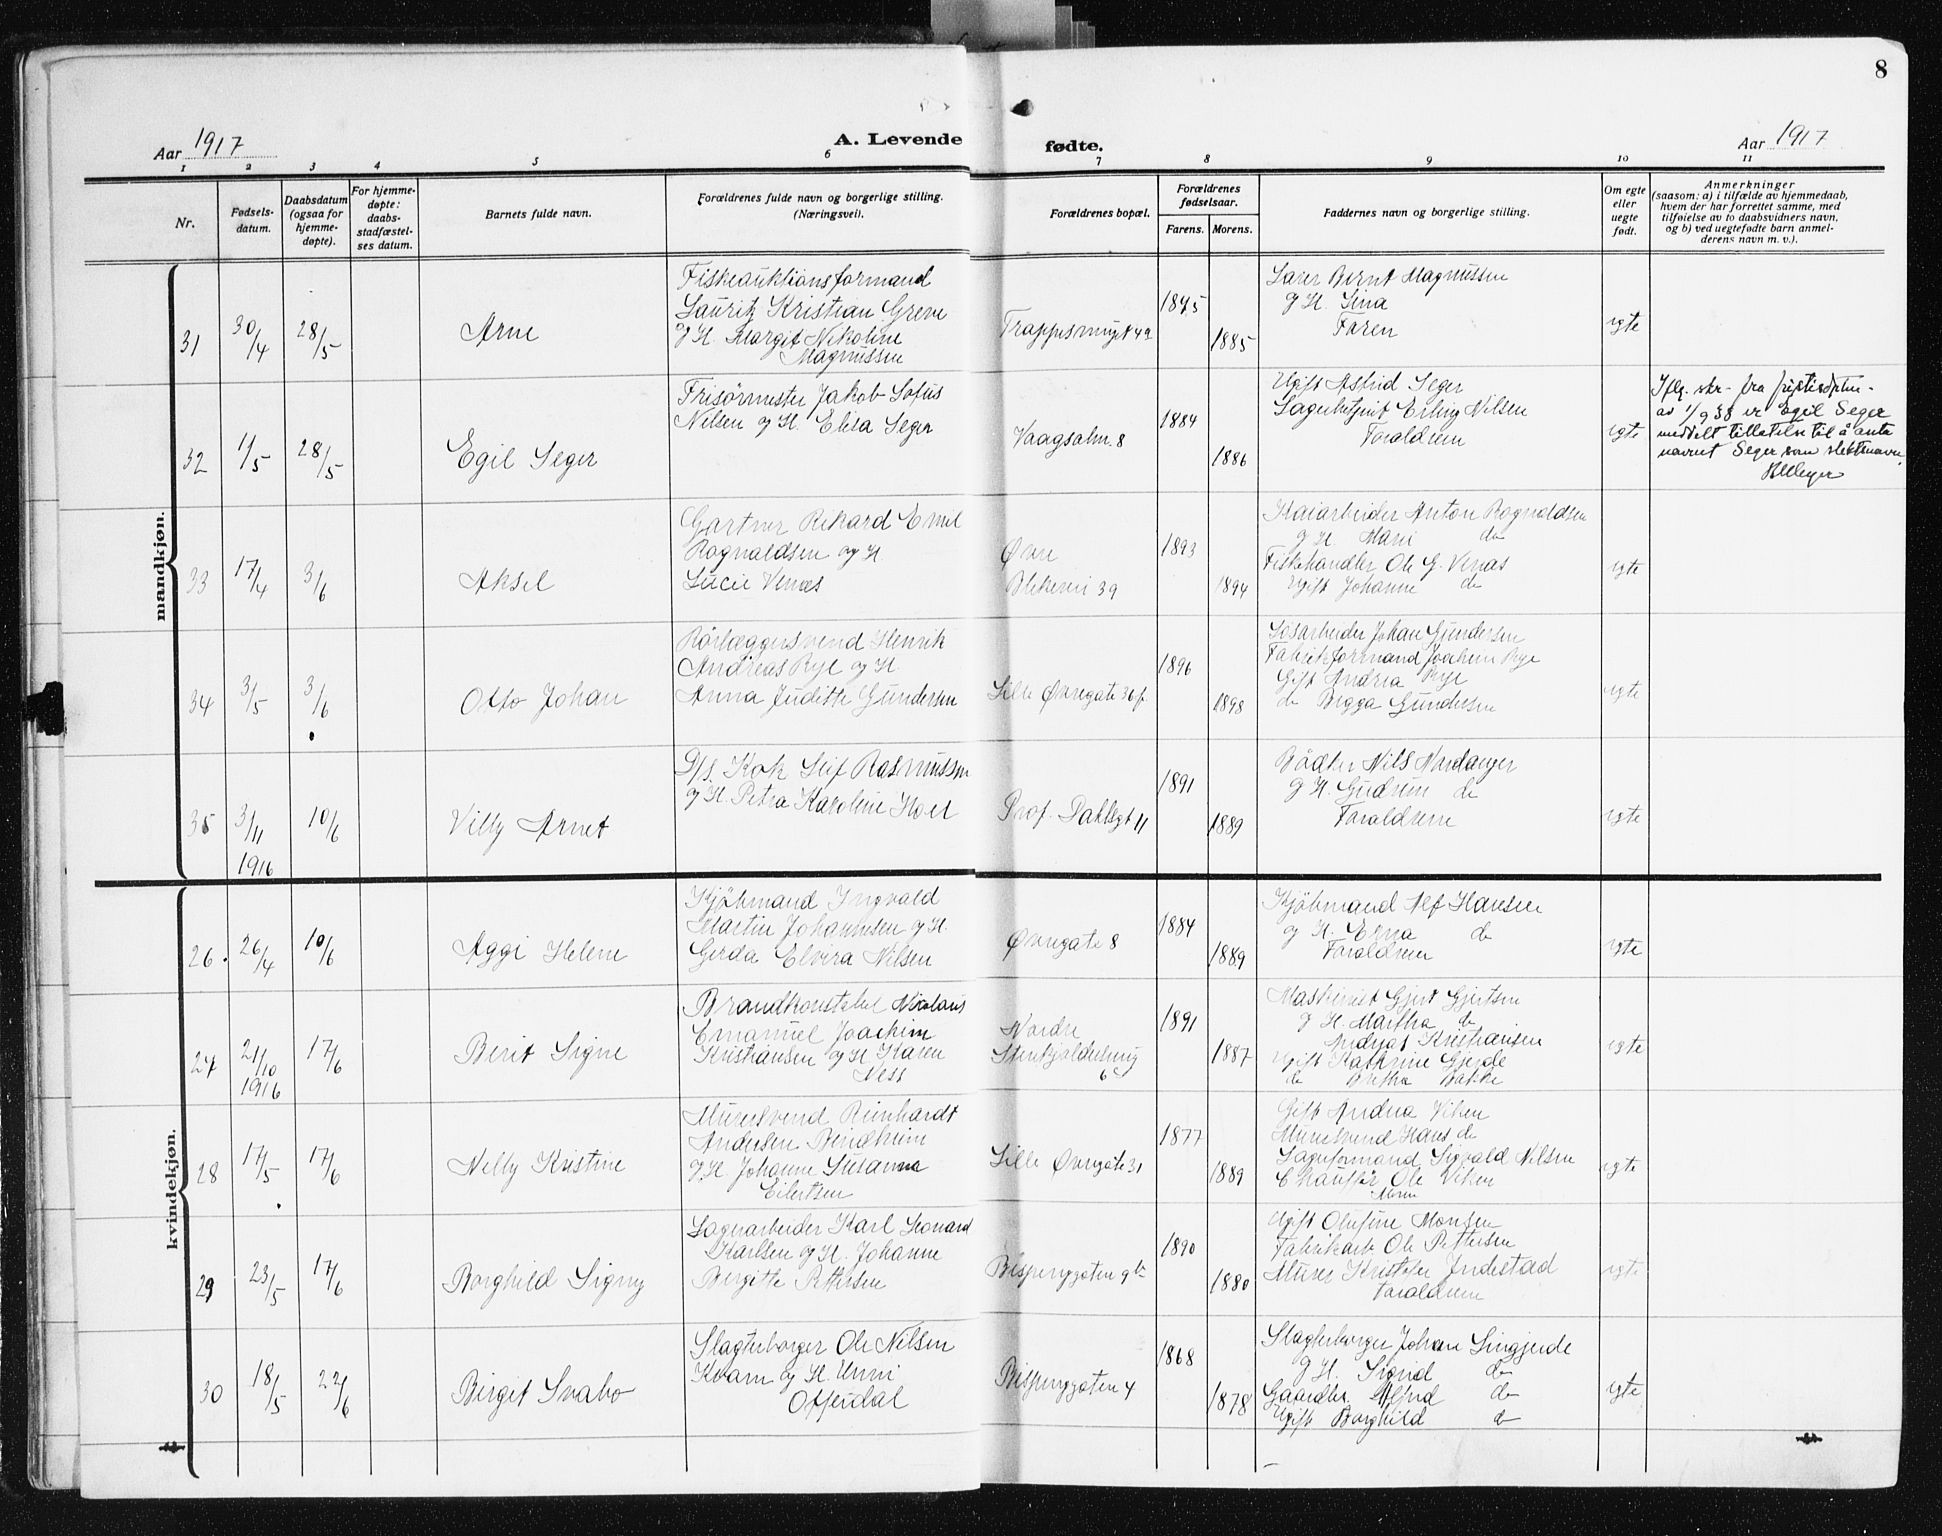 8
Aar 1917
A. Levende
fødte.
Aar 1917
1 2 3 4 5 6 7 8 9 10 11
Nr.
Fødsels-
datum.
Daabsdatum
(ogsaa for
hjemme-
døpte).
For hjemme-
døpte:
daabs-
stadfæstel-
ses datum.
Barnets fulde navn.
Forældrenes fulde navn og borgerlige stilling.
(Næringsvei).
Forældrenes bopæl.
Forældrenes
fødselsaar.
Farens. Morens.
Faddernes navn og borgerlige stilling.
Om egte
eller
uegte
født.
Anmerkninger
(saasom: a) i tilfælde av hjemmedaab,
hvem der har forrettet samme, med
tilføielse av to daabsvidners navn,
og b) ved uegtefødte barn anmel-
derens navn m. v.).
mandkjøn.
31
30/4
28/5
Arne
Fiskeauktionsformand
Lauritz Kristian Greve
og H. Margit Nikoline
Magnussen
Trappesmuget 4a
1875
1885
Bernt Magnussen
og H. Lina
Faren
egte
32
1/5
28/5
Egil Seger
Frisørmester Jakob Sofus
Nilsen og H. Elisa Seger
Vaagsalm. 8
1884
1886
Ugift Astrid Seger
Lagerbetjent Erling Nilsen
Forældrene
egte
Iflg. skr. fra justisdptm.
av 1/9 38 er Egil Seger
meddelt tillatelse til å anta
navnet Seger som slektsnavn.
33
17/4
3/6
Aksel
Gartner Rikard Emil
Rognaldsen og H.
Lucie Venæs
Øvre
Blekevei 39
1893
1894
Kaiarbeider Anton Rognaldsen
og H Mari do
Fiskehandler Ole G. Venæs
Ugift Johanne do
egte
34
3/5
3/6
Otto Johan
Rörlæggersvend Henrik
Andreas Rye og H.
Anna Judithe Gundersen
Lille Øvregate 36 f.
1896
1898
Løsarbeider Johan Gundersen
Fabrikformand Joachim Rye
Gift Andrea Rye
do Bigga Gundersen
egte
35
3/11
1916
10/6
Villy Arnet
D/s. Kok Leif Rasmussen
og H. Petra Karoline Hoel
Prof. Dahlsgt 11
1891
1889
Bödker Nils Nordanger
og H. Gudrun do
Forældrene
egte
kvindekjøn.
26.
26/4
10/6
Aggi Helene
Kjöbmand Ingvald
Martin Johannesen og H.
Gerda Elvira Nilsen
Øvregate 8
1884
1889
Kjöbmand Alf Hansen
og H. Erna do
Forældrene
egte
27
21/10
1916
17/6
Berit Signe
Brandkonstabel Nikolaus
Emanuel Joachim
Kristiansen og H Karen
Ness
Nordre
Stenkjeldersmug
6c
1891
1887
Maskinist Gjert Gjertsen
og H. Martha do
Andreas Kristiansen
Ugift Kathrine Gjerde
do Bertha Bakke
egte
28
17/5
17/6
Nelly Kristine
Murersvend Reinhardt
Andersen Bendheim
og H Johanne Susanna
Eilertsen
Lille Øvregate 31
1877
1889
Gift Andrea Viken
Murersvend Hans do
Lagerformand Sigvald Nilsen
Chauffør Ole Viken
Moren
egte
29
23/5
17/6
Borghild Signy
Lagerarbeider Karl Leonard
Karlsen og H. Johanne
Bergitte Pettersen
Bispenggaten 9b
1890
1880
Ugift Olufine Monsen
Fabrikarb Ole Pettersen
Murer Kristofer Indestad
Forældrene
egte
30
18/5
22/6
Birget Svabo
Slagterborger Ole Nilsen
Kvam og H. Unni
Offerdal
Bispenggaten 4
1868
1878
Slagterborger Johan Lingjerde
og H. Sigrid do
Gaardbr. do
Ugift Borghild do
egte